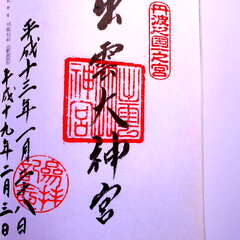 丹波国一之宮
出雲大神宮
出雲
神宮
平成十三年一月日
平成十九年二月三日